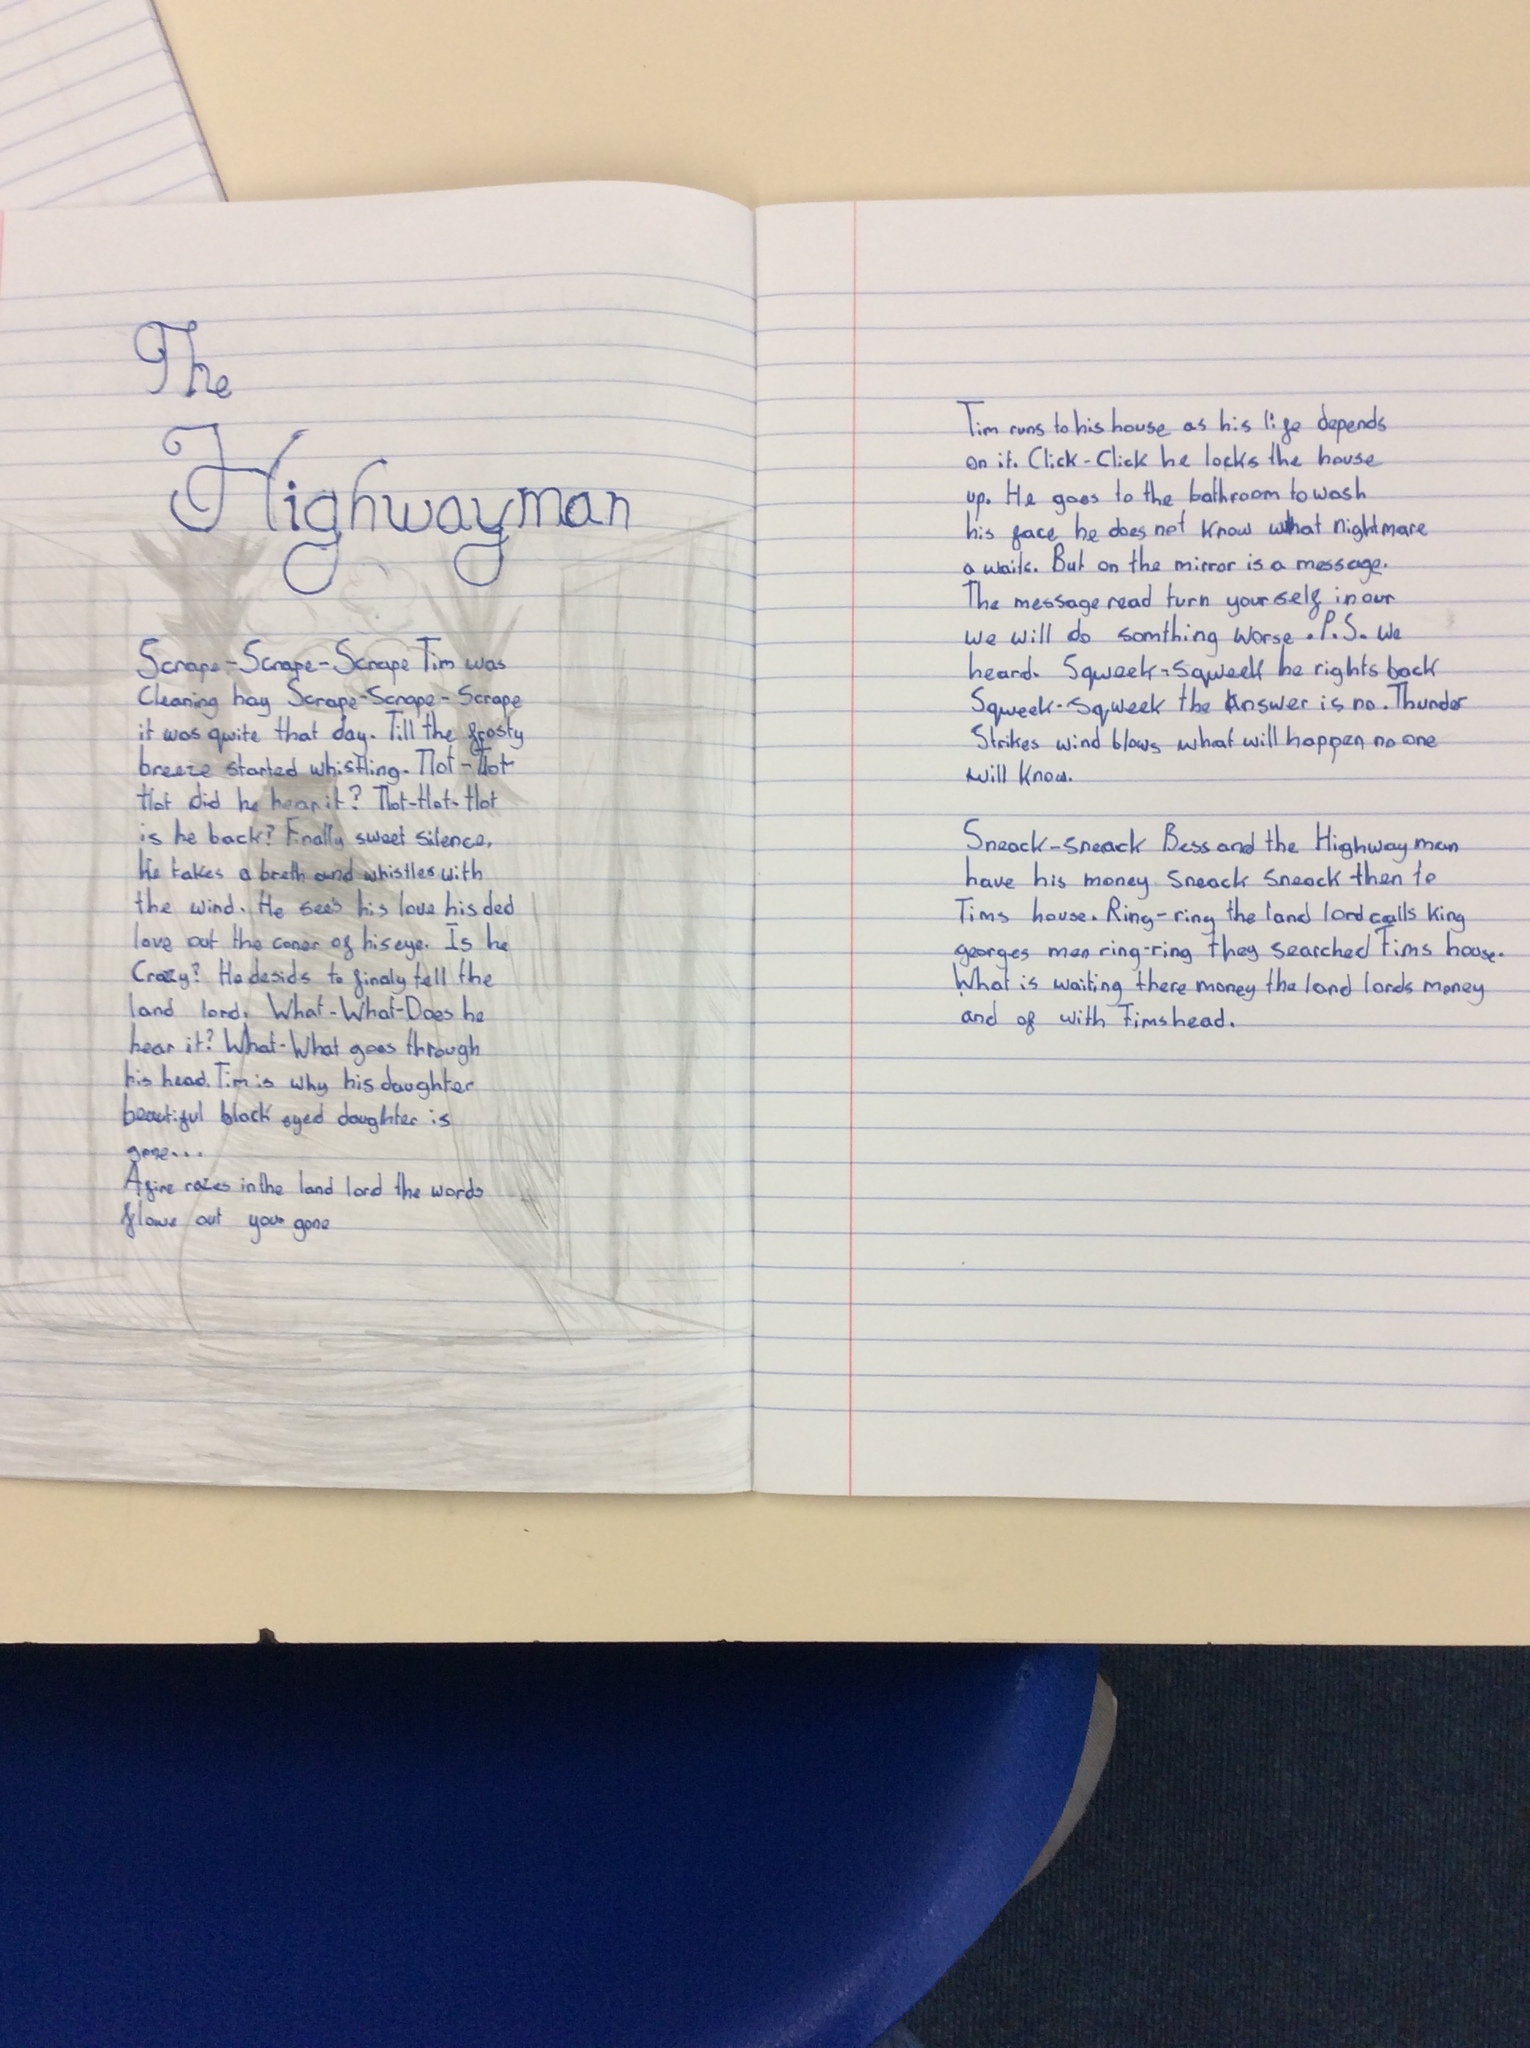 The
Highwayman
Scrape-Scrape-Scrape Tim was
Cleaning hay Scrape-Scrape-Scrape
it was quite that day. Till the frosty
breeze started whistling. Tlot-Tlot
tlot did he hear it? Tlot-tlot-tlot
is he back? Finally sweet silence,
He takes a breth and whistles with
the wind. He sees his love his ded
love out the coner of his eye. Is he
Crazy? He desids to finaly tell the
land lord. What-What-Does he
hear it? What-What goes through
his head. Tim is why his daughter
beautiful black eyed daughter is
gone...
A fire razes in the land lord the words
flowe out your gone
Tim runs to his house as his life depends
on it. Click-Click he locks the house
up. He goes to the bathroom to wash
his face he does not know what nightmare
a waits. But on the mirror is a message.
The message read turn your self in our
we will do somthing worse. P.S. we
heard. Squeek-Squeek he rights back
Squeek-Squeek the Answer is no. Thunder
Strikes wind blows what will happen no one
will know.
Sneack-sneack Bess and the Highway man
have his money sneack sneack then to
Tims house. Ring-ring the land lord calls king
georges men ring-ring they searched Tims house.
What is waiting there money the land lords money
and of with Tims head.